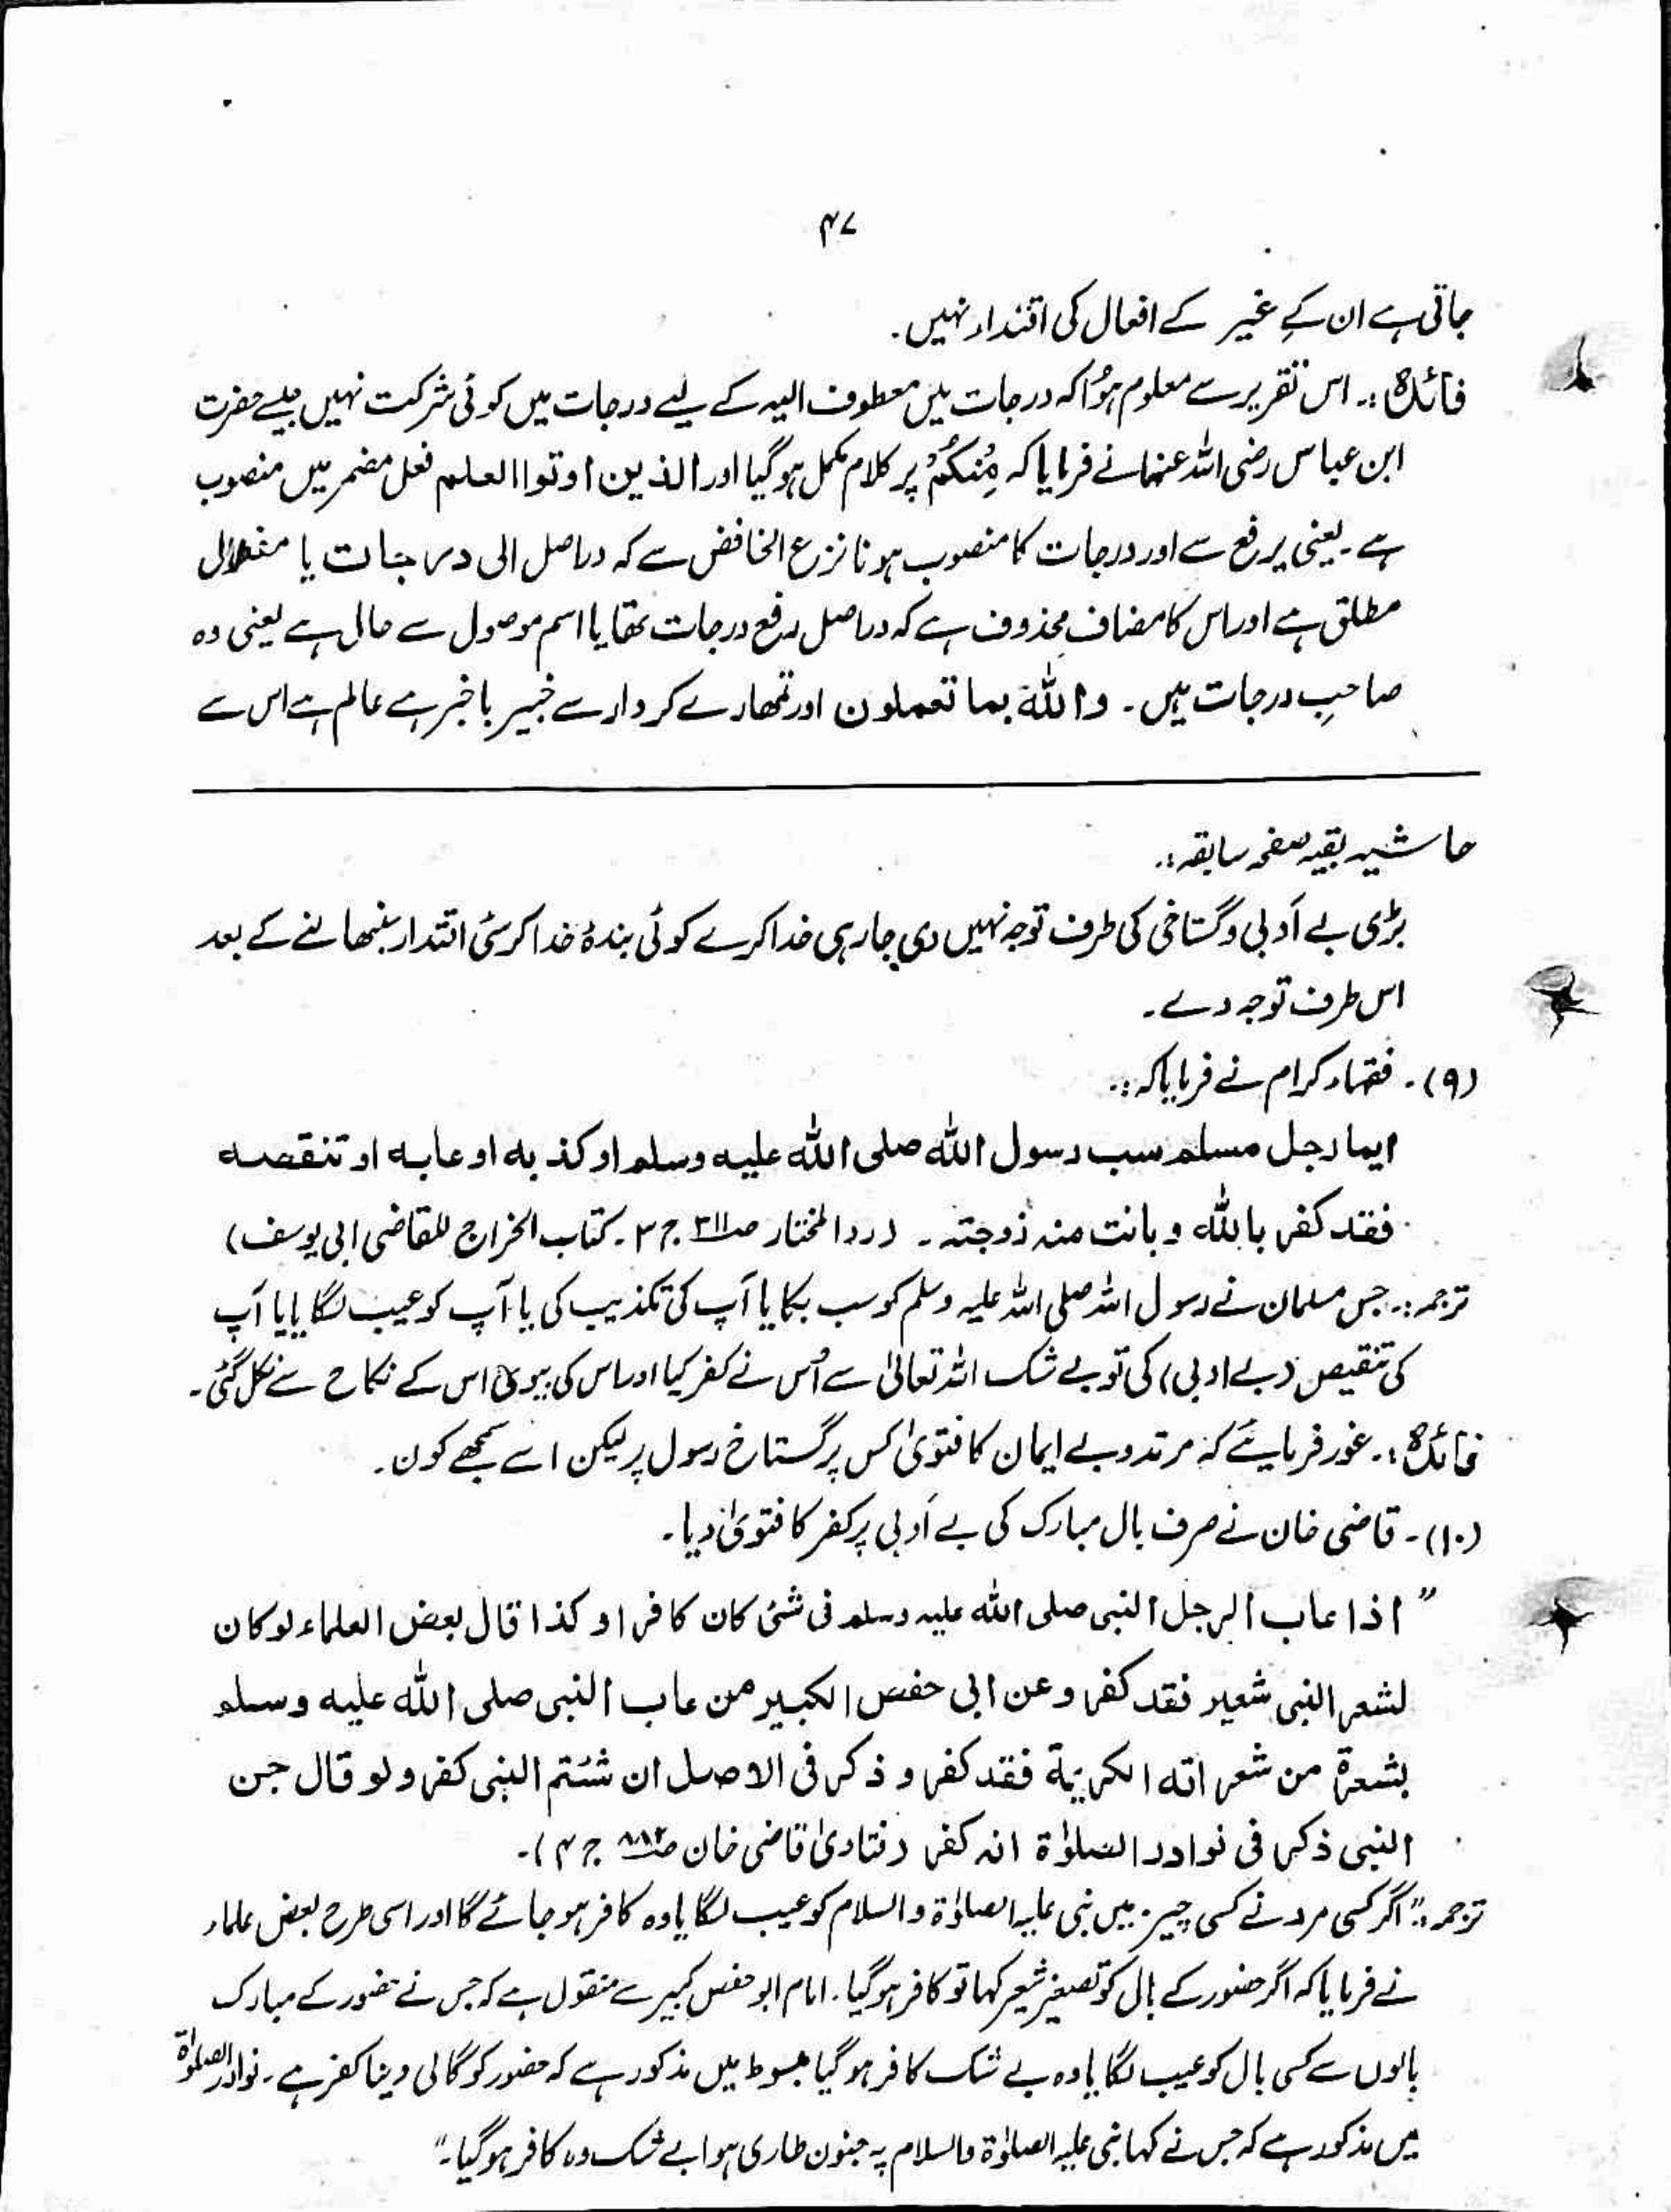 ۴۷
جاتی ہے ان کے غیر کے افعال کی اقتداء نہیں۔
فائدہ :۔ اس تقریر سے معلوم ہُوا کہ درجات میں معطوف الیہ کے لیے درجات میں کوئی شرکت نہیں جیسے حضرت
ابن عباس رضی اللہ عنہما نے فرمایا کہ مِنکُمْ پر کلام مکمل ہوگیا اور الذین اوتوا العلم فعل مضمر میں منصوب
ہے۔ یعنی یرفع سے اور درجات کا منصوب ہونا نزع الخافض سے کہ دراصل الی درجات یا مفعول
مطلق ہے اور اس کا مضاف محذوف ہے کہ دراصل رفع درجات تھا یا اسم موصول سے حال ہے یعنی وہ
صاحبِ درجات ہیں۔ واللہ بما تعملون اور تمھارے کردار سے خبیر باخبر ہے عالم ہے اس سے
حاشیہ بقیہ صفحہ سابقہ :۔
بڑی بے اَدبی و گستاخی کی طرف توجہ نہیں دی جارہی خدا کرے کوئی بندۂ خدا کرسئ اقتدار سنبھالنے کے بعد
اس طرف توجہ دے۔
(۹)۔ فقہاء کرام نے فرمایا کہ :۔
ایما رجل مسلم سب رسول اللہ صلی اللہ علیہ وسلم او کذبہ او عابہ او تنقصہ
فقد کفر باللہ و بانت منہ زوجتہ۔ (رد المختار ص۳۱۱ ج۳۔ کتاب الخراج للقاضی ابی یوسف)
ترجمہ :۔ جس مسلمان نے رسول اللہ صلی اللہ علیہ وسلم کو سب بکا یا آپ کی تکذیب کی یا آپ کو عیب لگایا یا آپ
کی تنقیص (بے ادبی) کی تو بے شک اللہ تعالیٰ سے اُس نے کفر کیا اور اس کی بیوی اس کے نکاح سے نکل گئی۔
فائدہ :۔ غور فرمایئے کہ مرتد و بے ایمان کا فتویٰ کس پر گستاخ رسول پر لیکن اسے سمجھے کون۔
(۱۰)۔ قاضی خان نے صرف بال مبارک کی بے اَدبی پر کفر کا فتویٰ دیا۔
" اذا عاب الرجل النبی صلی اللہ علیہ وسلم فی شئ کان کافرا و کذا قال بعض العلماء لو کان
لشعر النبی شعیر فقد کفر و عن ابی حفص الکبیر من عاب النبی صلی اللہ علیہ وسلم
بشعرۃ من شعراتہ الکریمۃ فقد کفر و ذکر فی الاصل ان شتم النبی کفر و لو قال جن
النبی ذکر فی نوادر الصلوٰۃ انہ کفر (فتاویٰ قاضی خان ص۸۸۲ ج۴)۔
ترجمہ :۔" اگر کسی مرد نے کسی چیز میں نبی علیہ الصلوٰۃ والسلام کو عیب لگایا وہ کافر ہو جائے گا اور اسی طرح بعض علماء
نے فرمایا کہ اگر حضور کے بال کو تصغیر شعیر کہا تو کافر ہوگیا۔ امام ابو حفص کبیر سے منقول ہے کہ جس نے حضور کے مبارک
بالوں سے کسی بال کو عیب لگایا وہ بے شک کافر ہوگیا مبسوط میں مذکور ہے کہ حضور کو گالی دینا کفر ہے۔ نوادر الصلوٰۃ
میں مذکور ہے کہ جس نے کہا نبی علیہ الصلوٰۃ والسلام پہ جنون طاری ہوا بے شک وہ کافر ہوگیا۔"